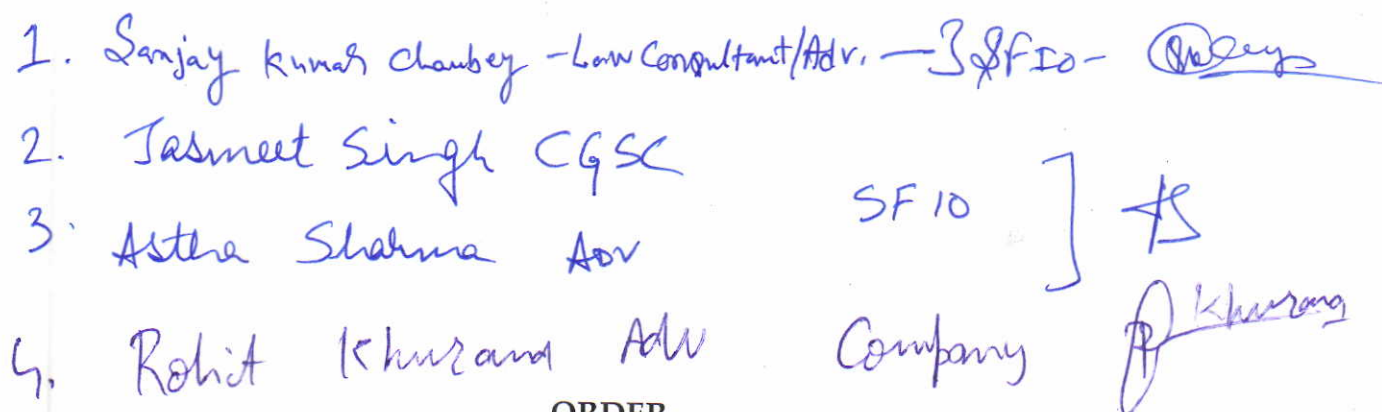 1. Sanjay Kumar Chaubey - Law Consultant/Adv. — } SFIO -
2. Jasmeet Singh CGSC
3. Astha Sharma Adv SFIO ]
4. Rohit Khurana Adv Company Khurana
ORDER